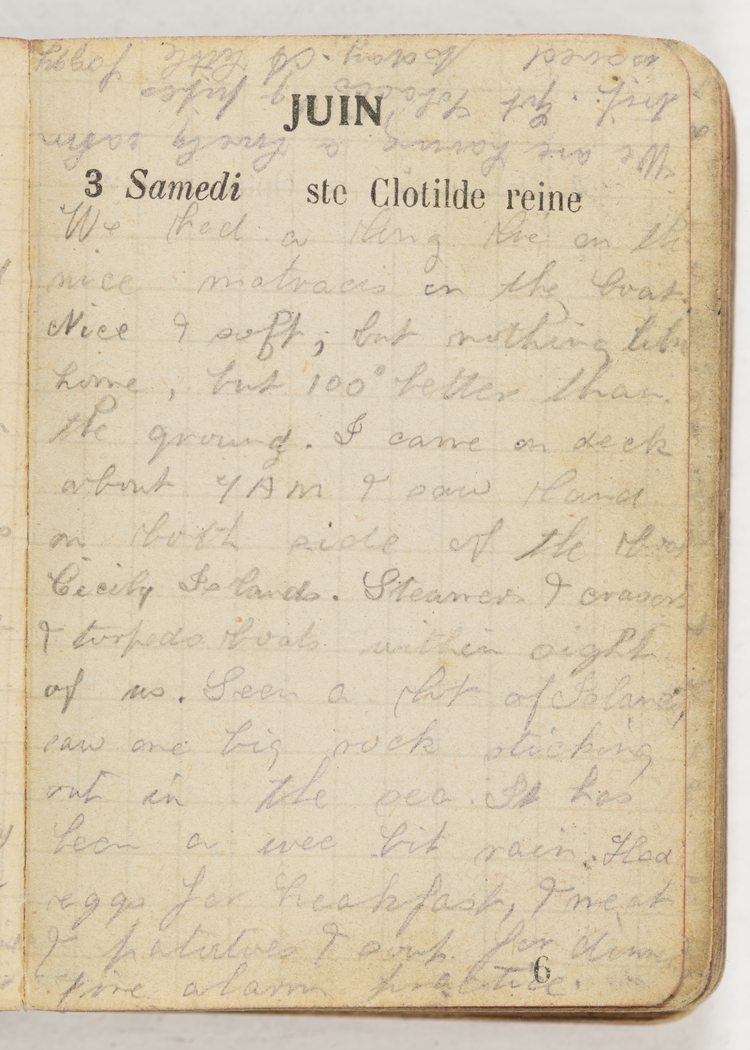 saved today. A little foggy
trip. Got tobacco & pipes
We are having a lovely calm
JUIN
3 Samedi ste Clotilde reine
We had a long lie on th
nice matracis in the boat.
Nice & soft; but nothing like
home, but 100° better than
the ground. I came on deck
about 7 AM & saw land
on both side of the boat
Cicily Islands. Steamers & crusers
& torpedo boats within sight
of us. Seen a lot of Islands,
saw one big rock sticking
out in the sea. It has
been a wee bit rain. Had
eggs for breakfast, & meat
& patatoes & soup. for dinner
Fire alarm practice.
6